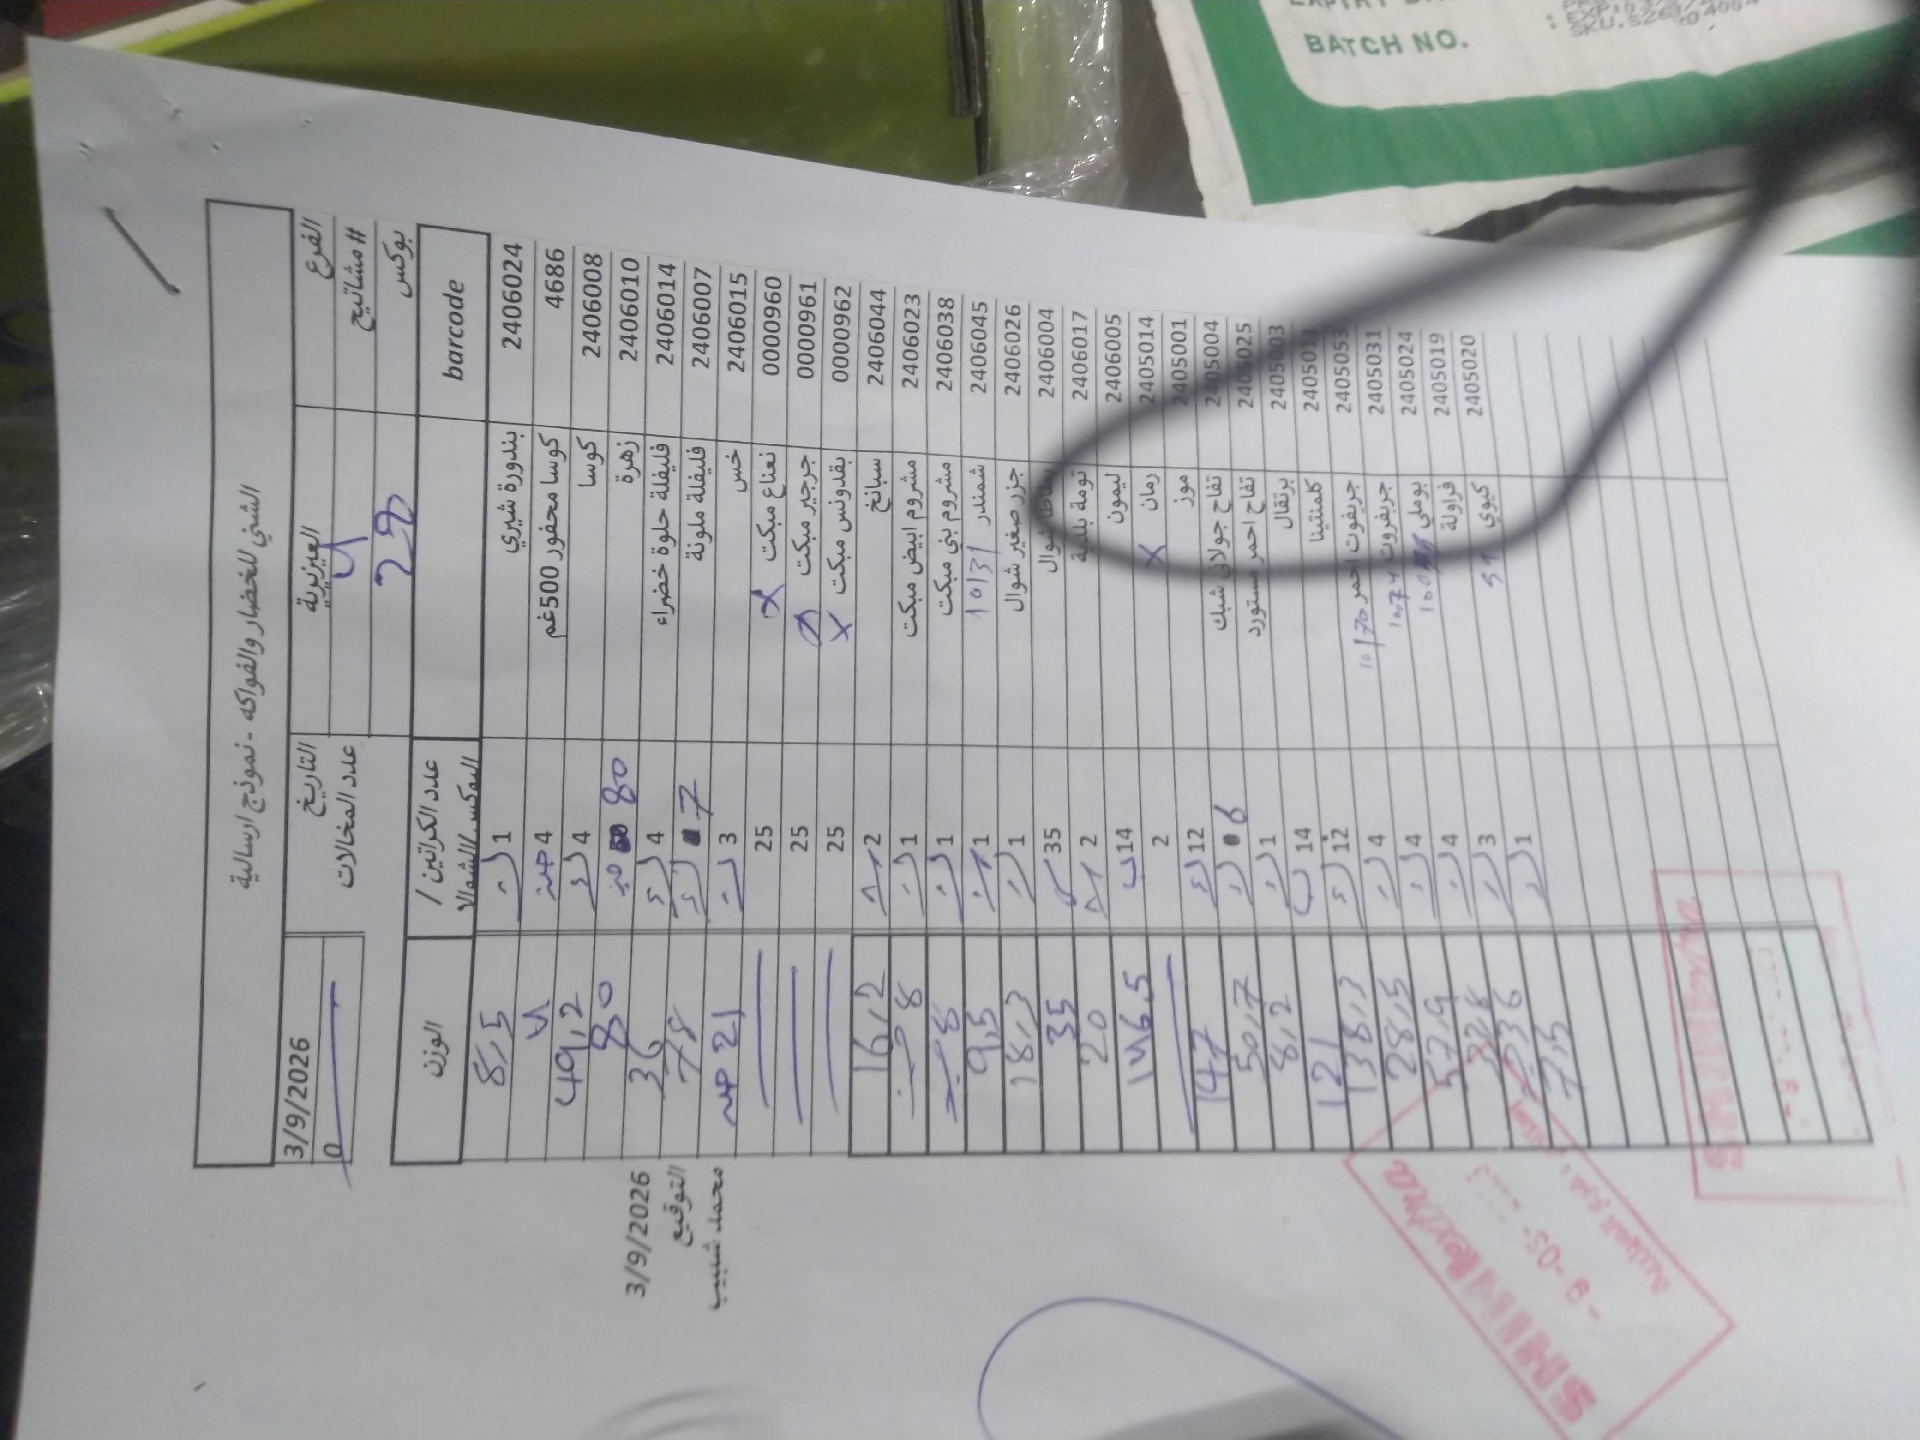 الشني للخضار والفواكه - نموذج ارسالية
الفرع العيزيرية التاريخ 3/9/2026
#مشاتيح 4 عدد المخالات 0
بوكس 290
barcode عدد الكراتين / البوكس/الشوالا الوزن
2406024 بندورة شيري 1 8,5
4686 كوسا محفور 500غم 4 4
2406008 كوسا 4 49,2
2406010 زهرة 80 80
2406014 فليفلة حلوة خضراء 4 36
2406007 فليفلة ملونة 7 78
2406015 خس 3 21
0000960 نعناع مبكت X 25
0000961 جرجير مبكت 25
0000962 بقدونس مبكت X 25
2406044 سبانخ 2 16,2
2406023 مشروم ابيض مبكت 1 8
2406038 مشروم بني مبكت 1 8
2406045 شمندر 10131 1 9,5
2406026 جزر صغير شوال 1 18,3
2406004 بطاطا شوال 35 35
2406017 تومة بلدية 2 20
2406005 ليمون 14 146,5
2405014 رمان X 2
2405001 موز 12 147
2405004 تفاح جولاني شبك 6 50,7
2405025 تفاح احمر مستورد 1 8,2
2405003 برتقال 14 121
2405011 كلمنتينا 12 138,3
2405053 جريفوت احمر 10170 4 28,5
2405031 جريفروت 4 57,9
2405024 بوملي 4
2405019 فراولة 3 36
2405020 كيوي 1 7,5
3/9/2026
التوقيع
محمد شبيب
BATCH NO.